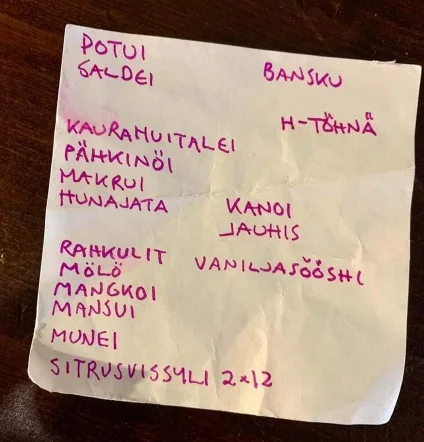 POTUI
SALDEI
BANSKU
H-TÖHNÄ
KAURAHUITALEI
PÄHKINÖI
MAKRUI
HUNAJATA
KANOI
JAUHIS
RAHKULIT
MÖLÖ
VANILJASÖÖSHI
MANGKOI
MANSUI
MUNEI
SITRUSVISSYLI 2x12